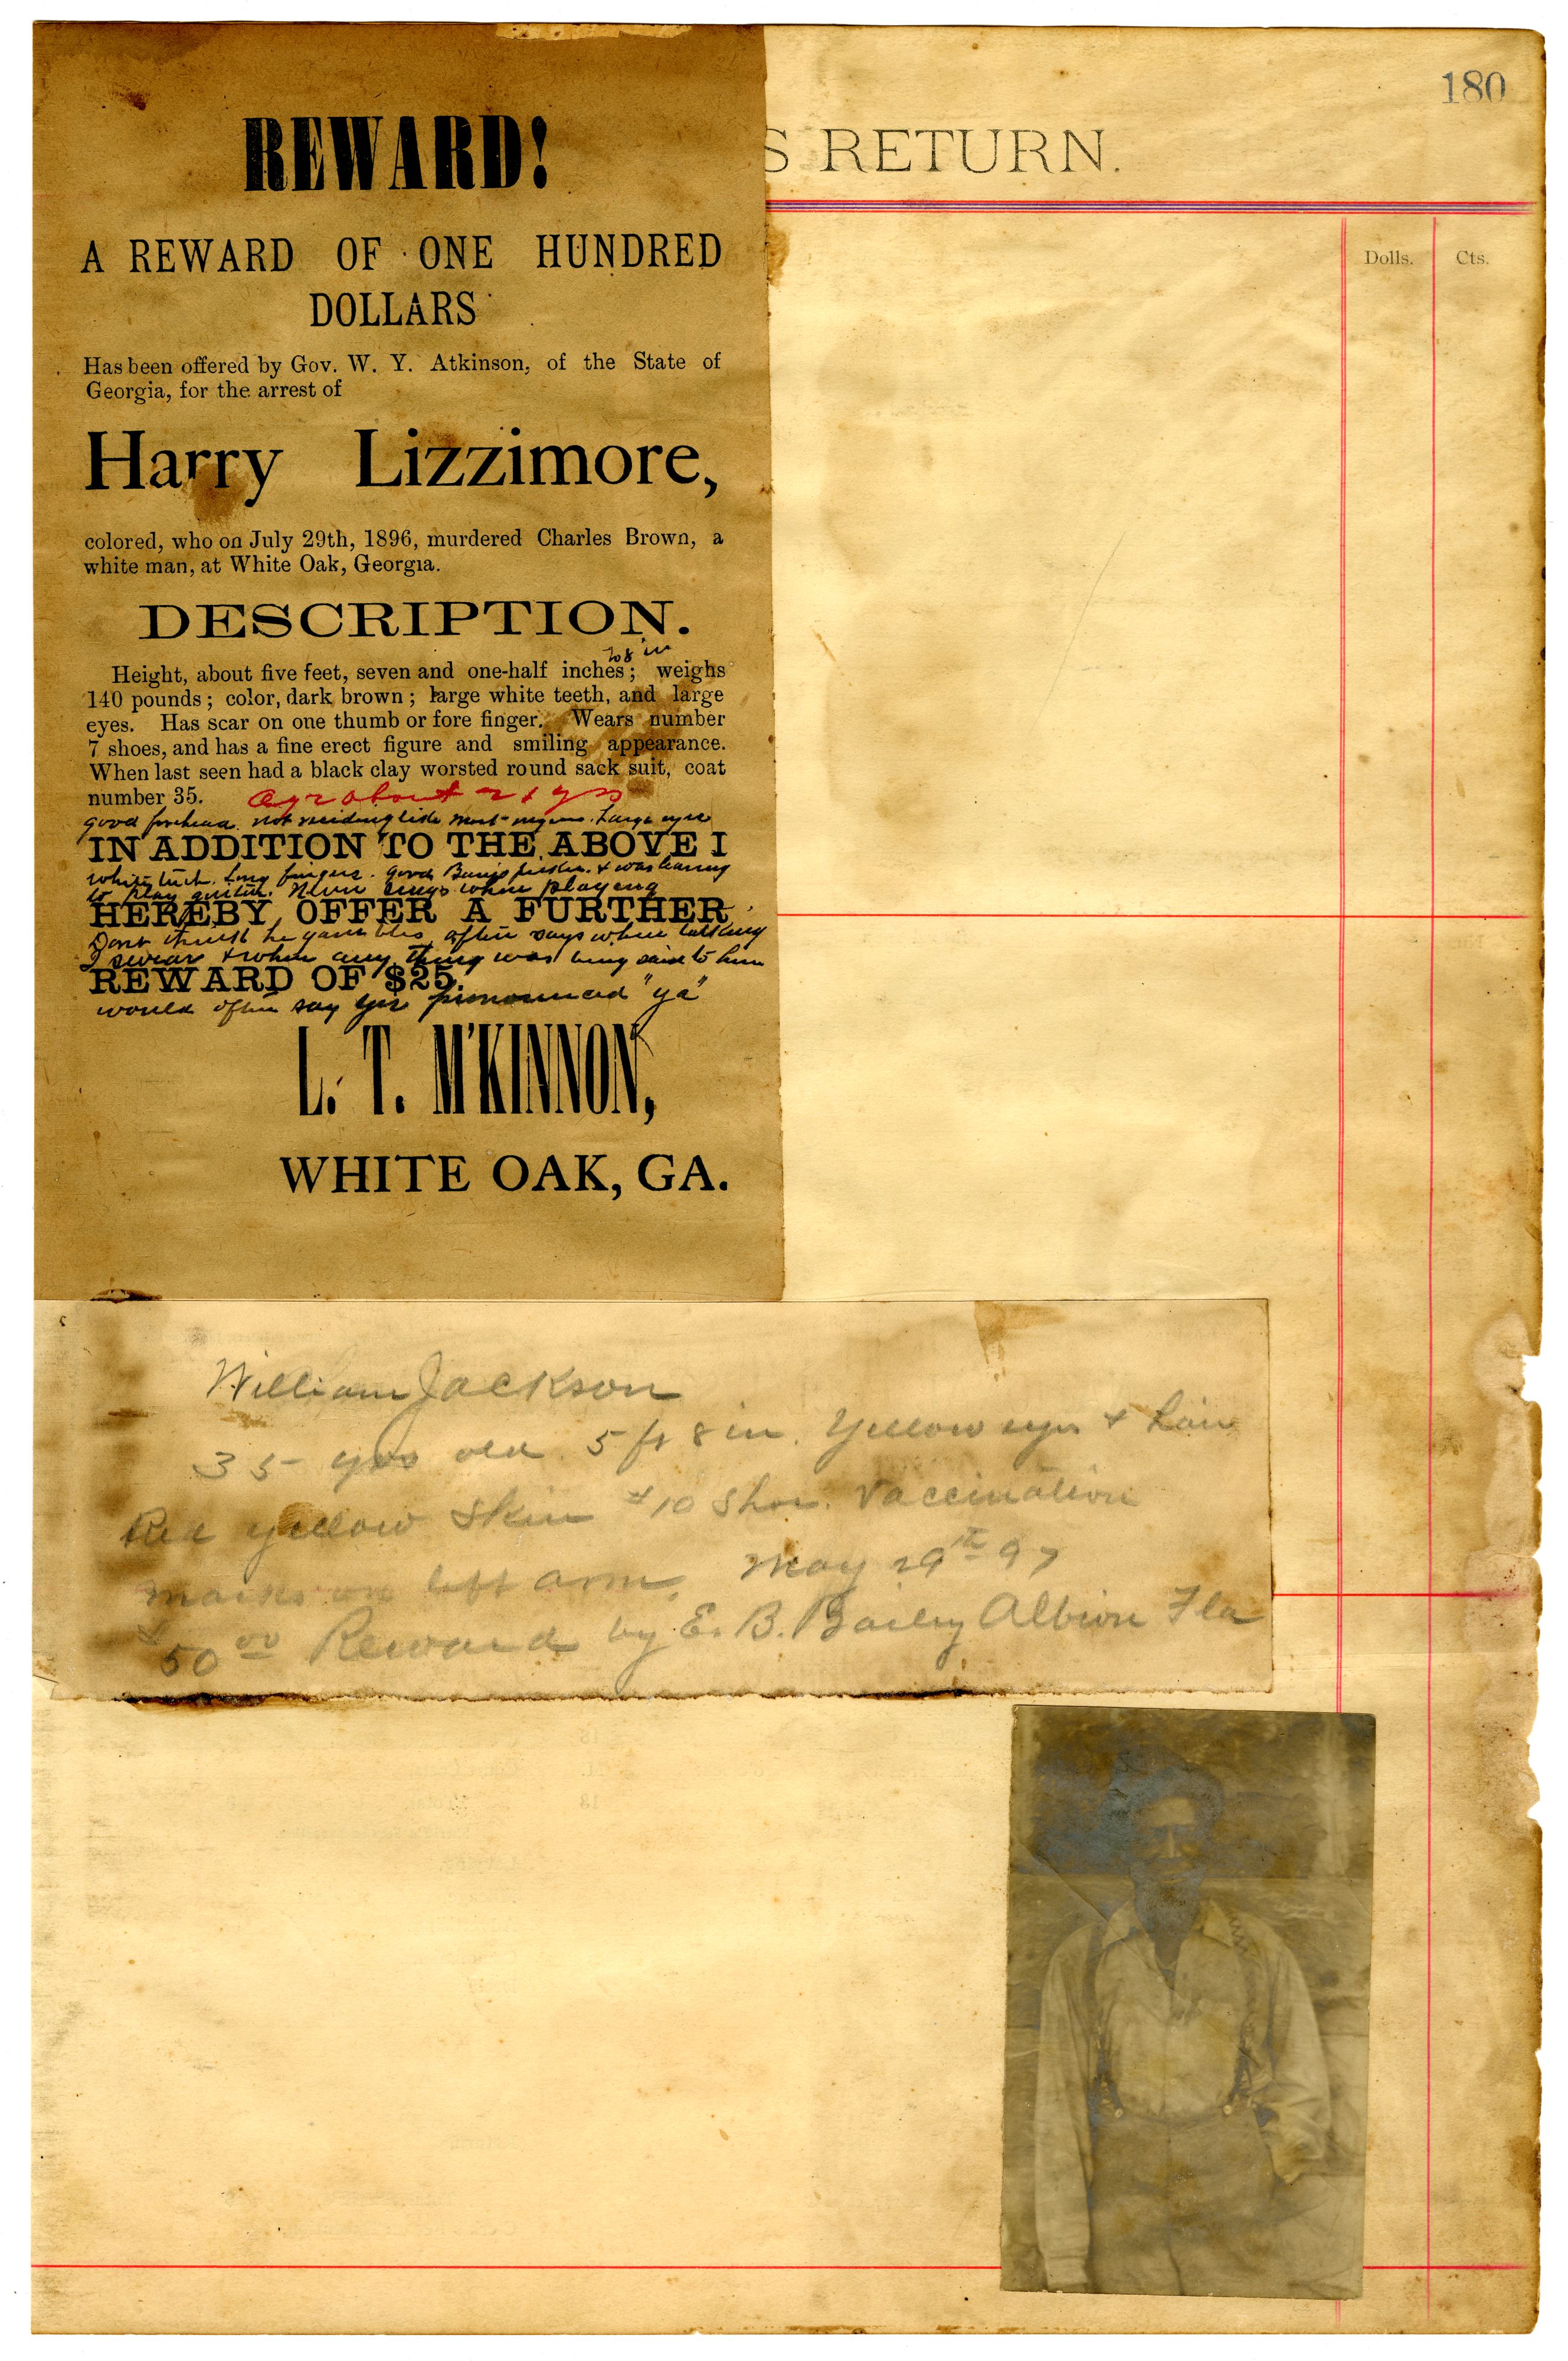 180
S RETURN.
Dolls. Cts.
REWARD!
A REWARD OF ONE HUNDRED
DOLLARS
Has been offered by Gov. W. Y. Atkinson, of the State of
Georgia, for the arrest of
Harry Lizzimore,
colored, who on July 29th, 1896, murdered Charles Brown, a
white man, at White Oak, Georgia.
DESCRIPTION.
to 8 in
Height, about five feet, seven and one-half inches; weighs
140 pounds; color, dark brown; large white teeth, and large
eyes. Has scar on one thumb or fore finger. Wears number
7 shoes, and has a fine erect figure and smiling appearance.
When last seen had a black clay worsted round sack suit, coat
number 35. Age about yrs
good forehead not receding like most negroes. Large eyes
IN ADDITION TO THE ABOVE I
white teeth. Long fingers. good Banjo picker. & was learning
to play guitar. Never sings when playing
HEREBY OFFER A FURTHER
Dont think he gambles often says when talking
I swear & when any thing was being said to him
REWARD OF $25.
would often say yes pronounced "ya"
L. T. M'KINNON,
WHITE OAK, GA.
William Jackson
35 yrs old 5 ft 8 in. Yellow eyes & hair
Red yellow Skin #10 Shoe. Vaccination
marks on left arm. May 29th 97
$50 00 Reward by E. B. Bailey Albion Fla